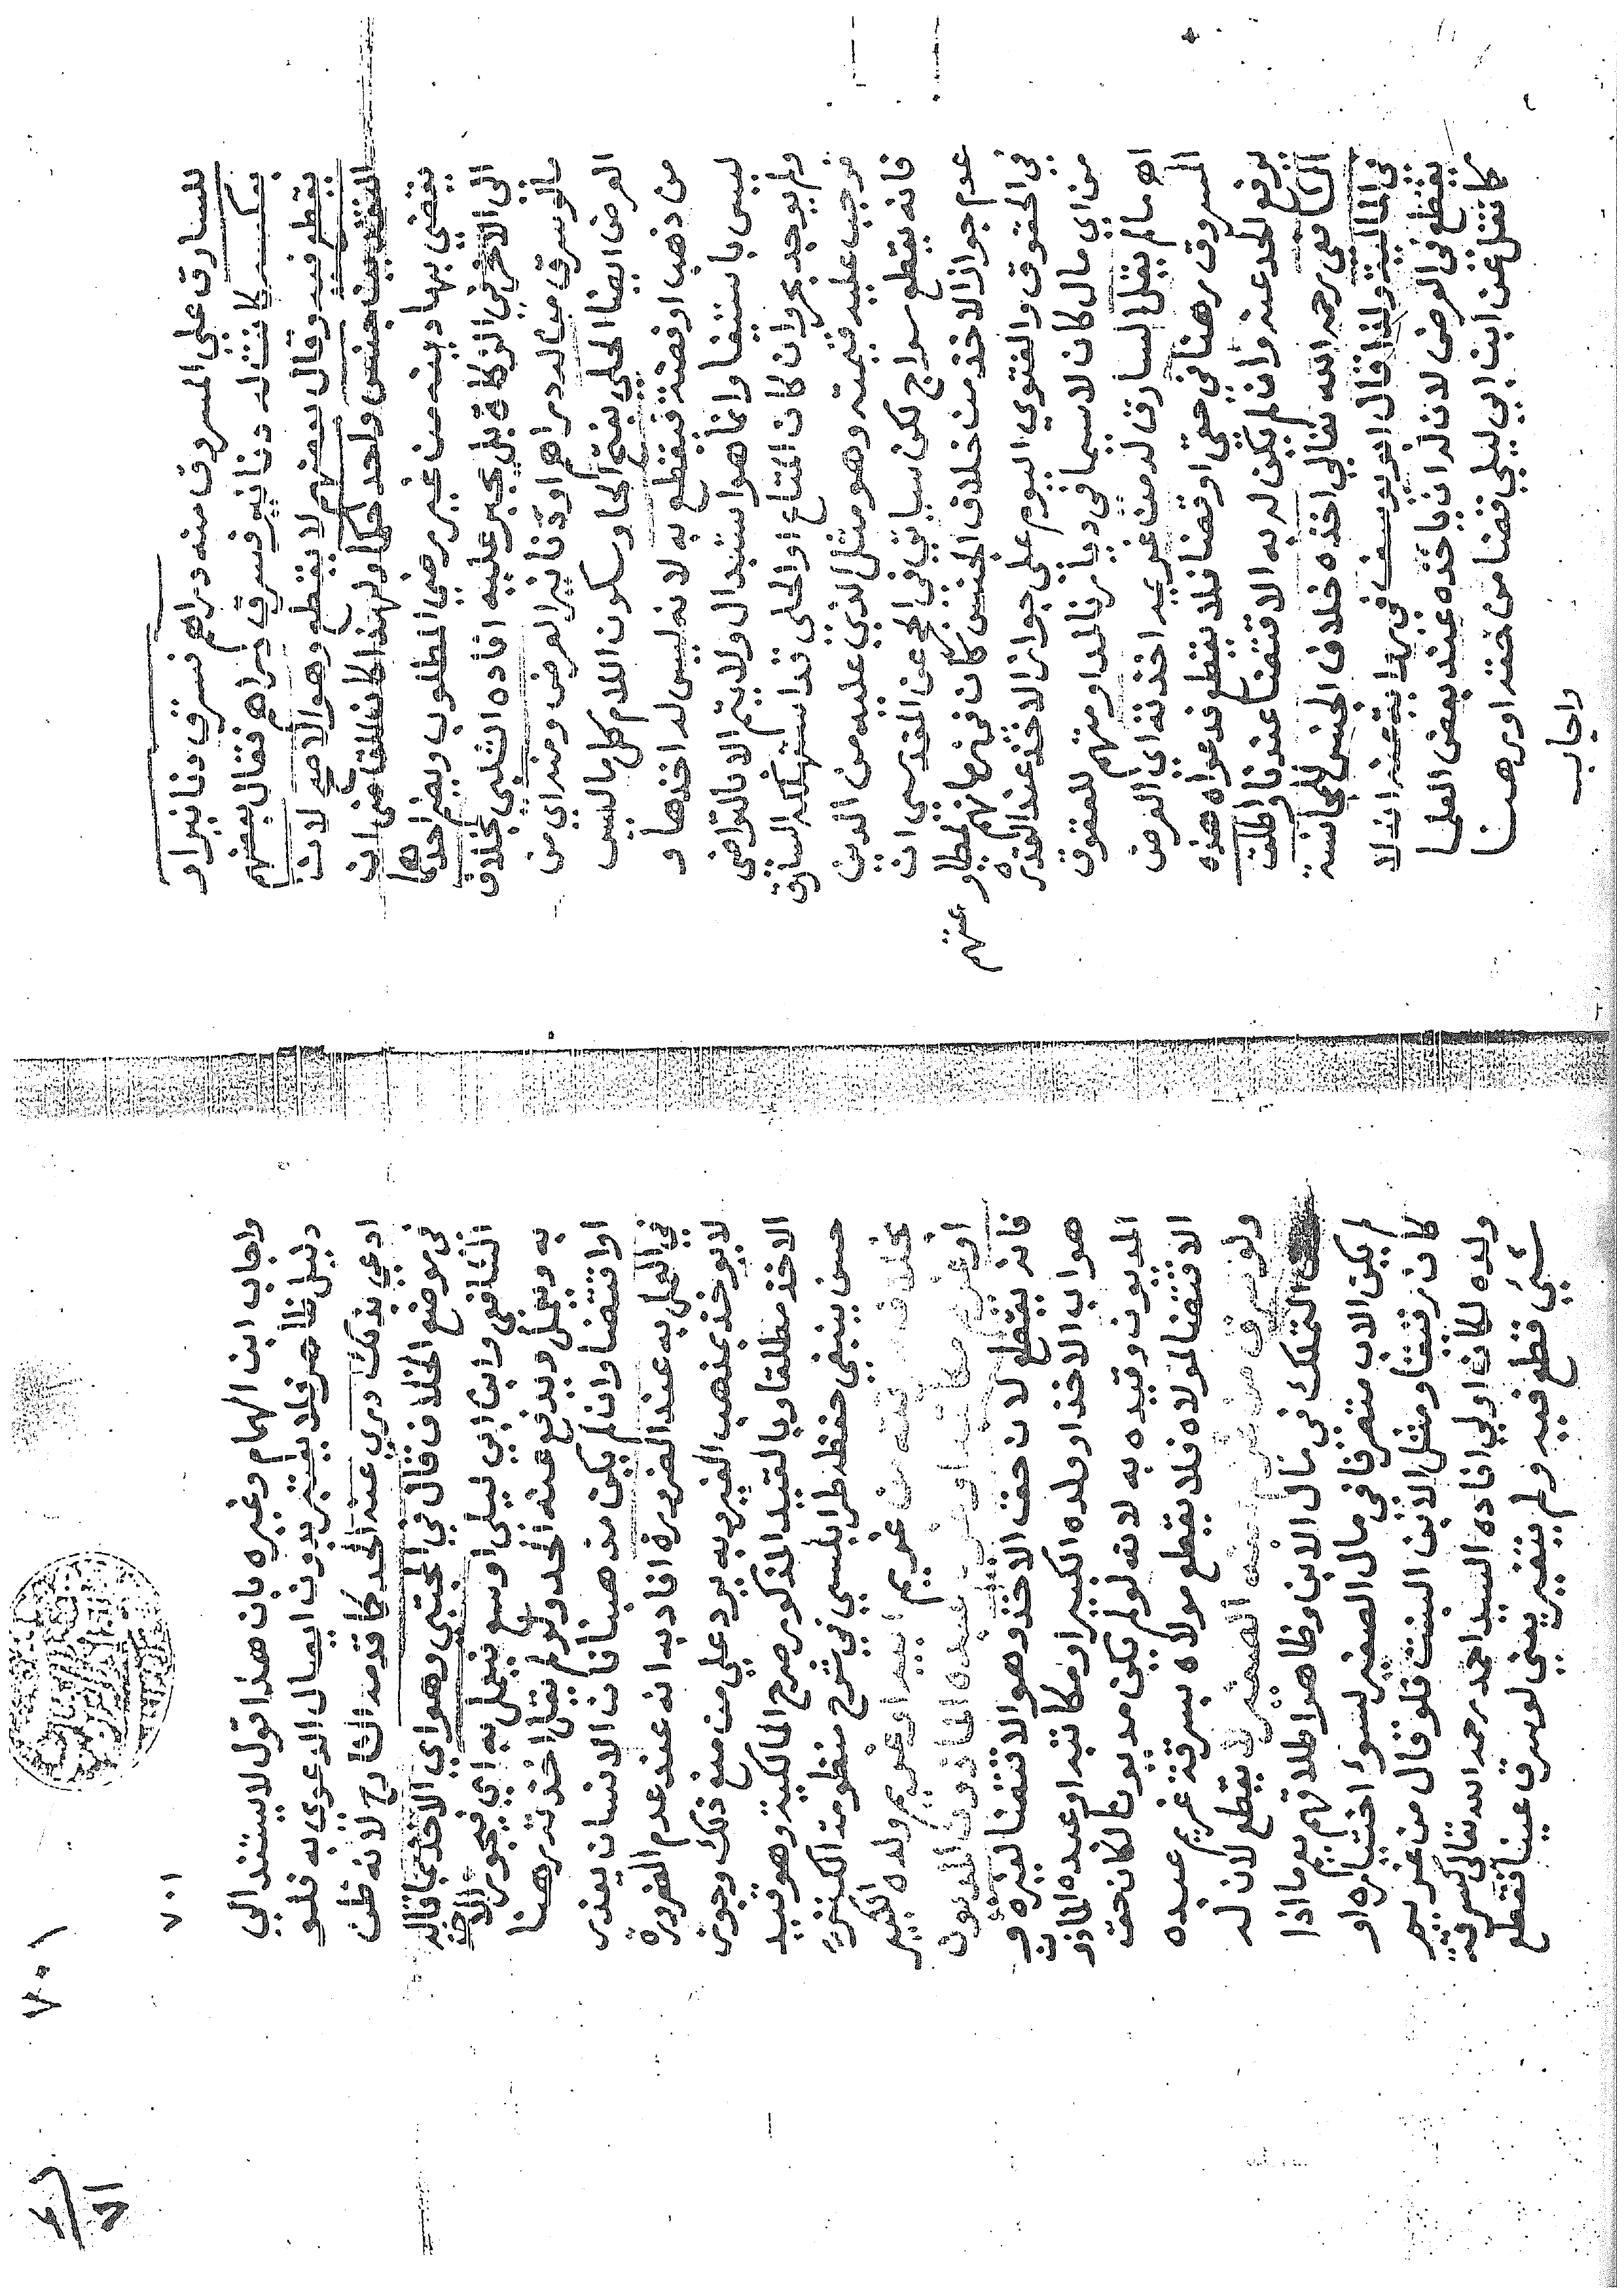 للسارق علي المسروق منه دراهم فسرق دنانير او
بعكسه كانت له دنانير فسرق دراهم فقال بعضهم
يقطع فيه وقال بعضهم لا يقطع وهو الاصح لان
النقدين جنس واحد حكما ولهذا كان للقاضي ان
يقضي بها دينه من غير رضي المطلوب ويضم احدهما
الي الاخري في الزكاة بل يجبر عليه افاده الشلبي بخلاف
ما لو سرق من له دراهم او دنانير العرض ومنه اي من
العرض ايضا الحلي بفتح الحاء وسكون اللام كل ما لبس
من ذهب او فضة فيقطع به لانه ليس له اخذها و
ليس باستيفا وانما هو استبدال ولا يتم الا بالتراضي
ولم يوجد بحر وان كان المتاع او الحلي قد استهلكه السارق
فوجب عليه قيمته وهو مثل الذي عليه من الدين
فانه يقطع سراج لكن سياتي في الحجر عن المقدسي ان
عدم جواز الاخذ من خلاف الجنس كان في زمانهم لمطاوعتهم
في الحقوق والفتوي اليوم علي جواز الاخذ عند القدرة
من اي مال كان لا سيما في ديارنا لمداومتهم للعقوق
اه ما لم يقل السارق له من غريمه اخذته اي العرض
المسروق رهنا في حقي او قضا فلا يقطع فدعواه هذه
يرفع الحد عنه وان لم يكن له به الاقتضا عندنا واطلق
الشافعي رحمه الله تعالي اخذه خلاف الجنس للمجانسة
في المالية ولذا قال ابو يوسف في رواية عنه انه لا
يقطع في العرض لان له ان ياخذه عند بعض العلما
كما نقل عن ابن ابي ليلي قضا من حقه او رهنا
واجاب
٧٠١
٧٠١
واجاب ابن الهمام وغيره بان هذا قول لا يستند الي
دليل ظاهر فلا يعتبر بدون اتصال الدعوي به فلو
ادعي ذلك دري عنه الحد كما قدمه الشارح لانه ظن
في موضع الخلاف قال في المجتبي وهو اي الاخذ بما قاله
الشافعي وابن ابي ليلي اوسع فيعمل به اي فيجوز الاخذ
به ويعمل ويدفع عنه الحد ولو لم يقل اخذته رهنا
او اقتضا وان لم يكن مذهبنا فان الانسان يعذر
في العمل به عند الضرورة افاد به انه عند عدم الضرورة
لا يؤخذ بمذهب الغير به يرد علي من منع ذلك وجوز
الاخذ مطلقا وبالقيد المذكور صرح المالكية وهو قيد
حسن ينبغي حفظه طرابلسي في شرح منظومة الكنز
بخلاف سرقته من غريم ابيه او غريم ولده الكبير
او غريم مكاتبه او غريم عبده الماذون المديون
فانه يقطع لان حق الاخذ وهو الاقتضا لغيره و
هو اب الاخذ او ولده الكبير او مكاتبه او عبده الماذون
المديون وقيده به لانه لو لم يكن مديونا لكان حق
الاقتضا لمولاه فلا يقطع مولاه بسرقة غريم عبده
ولو سرق من غريم ابنه الصغير لا يقطع لان له
حق التملك في مال الابن وظاهر اطلاقهم يعم ما اذا
لم يكن الاب متصرفا في مال الصغير لسوء اختياره او
كان رقيقا ومثل الابن البنت فلو قال من غريم
ولده لكان اولي افاده السيد احمد رحمه الله تعالي كسرقة
شئ قطع فيه ولم يتغير يعني لو سرق عينا فقطع